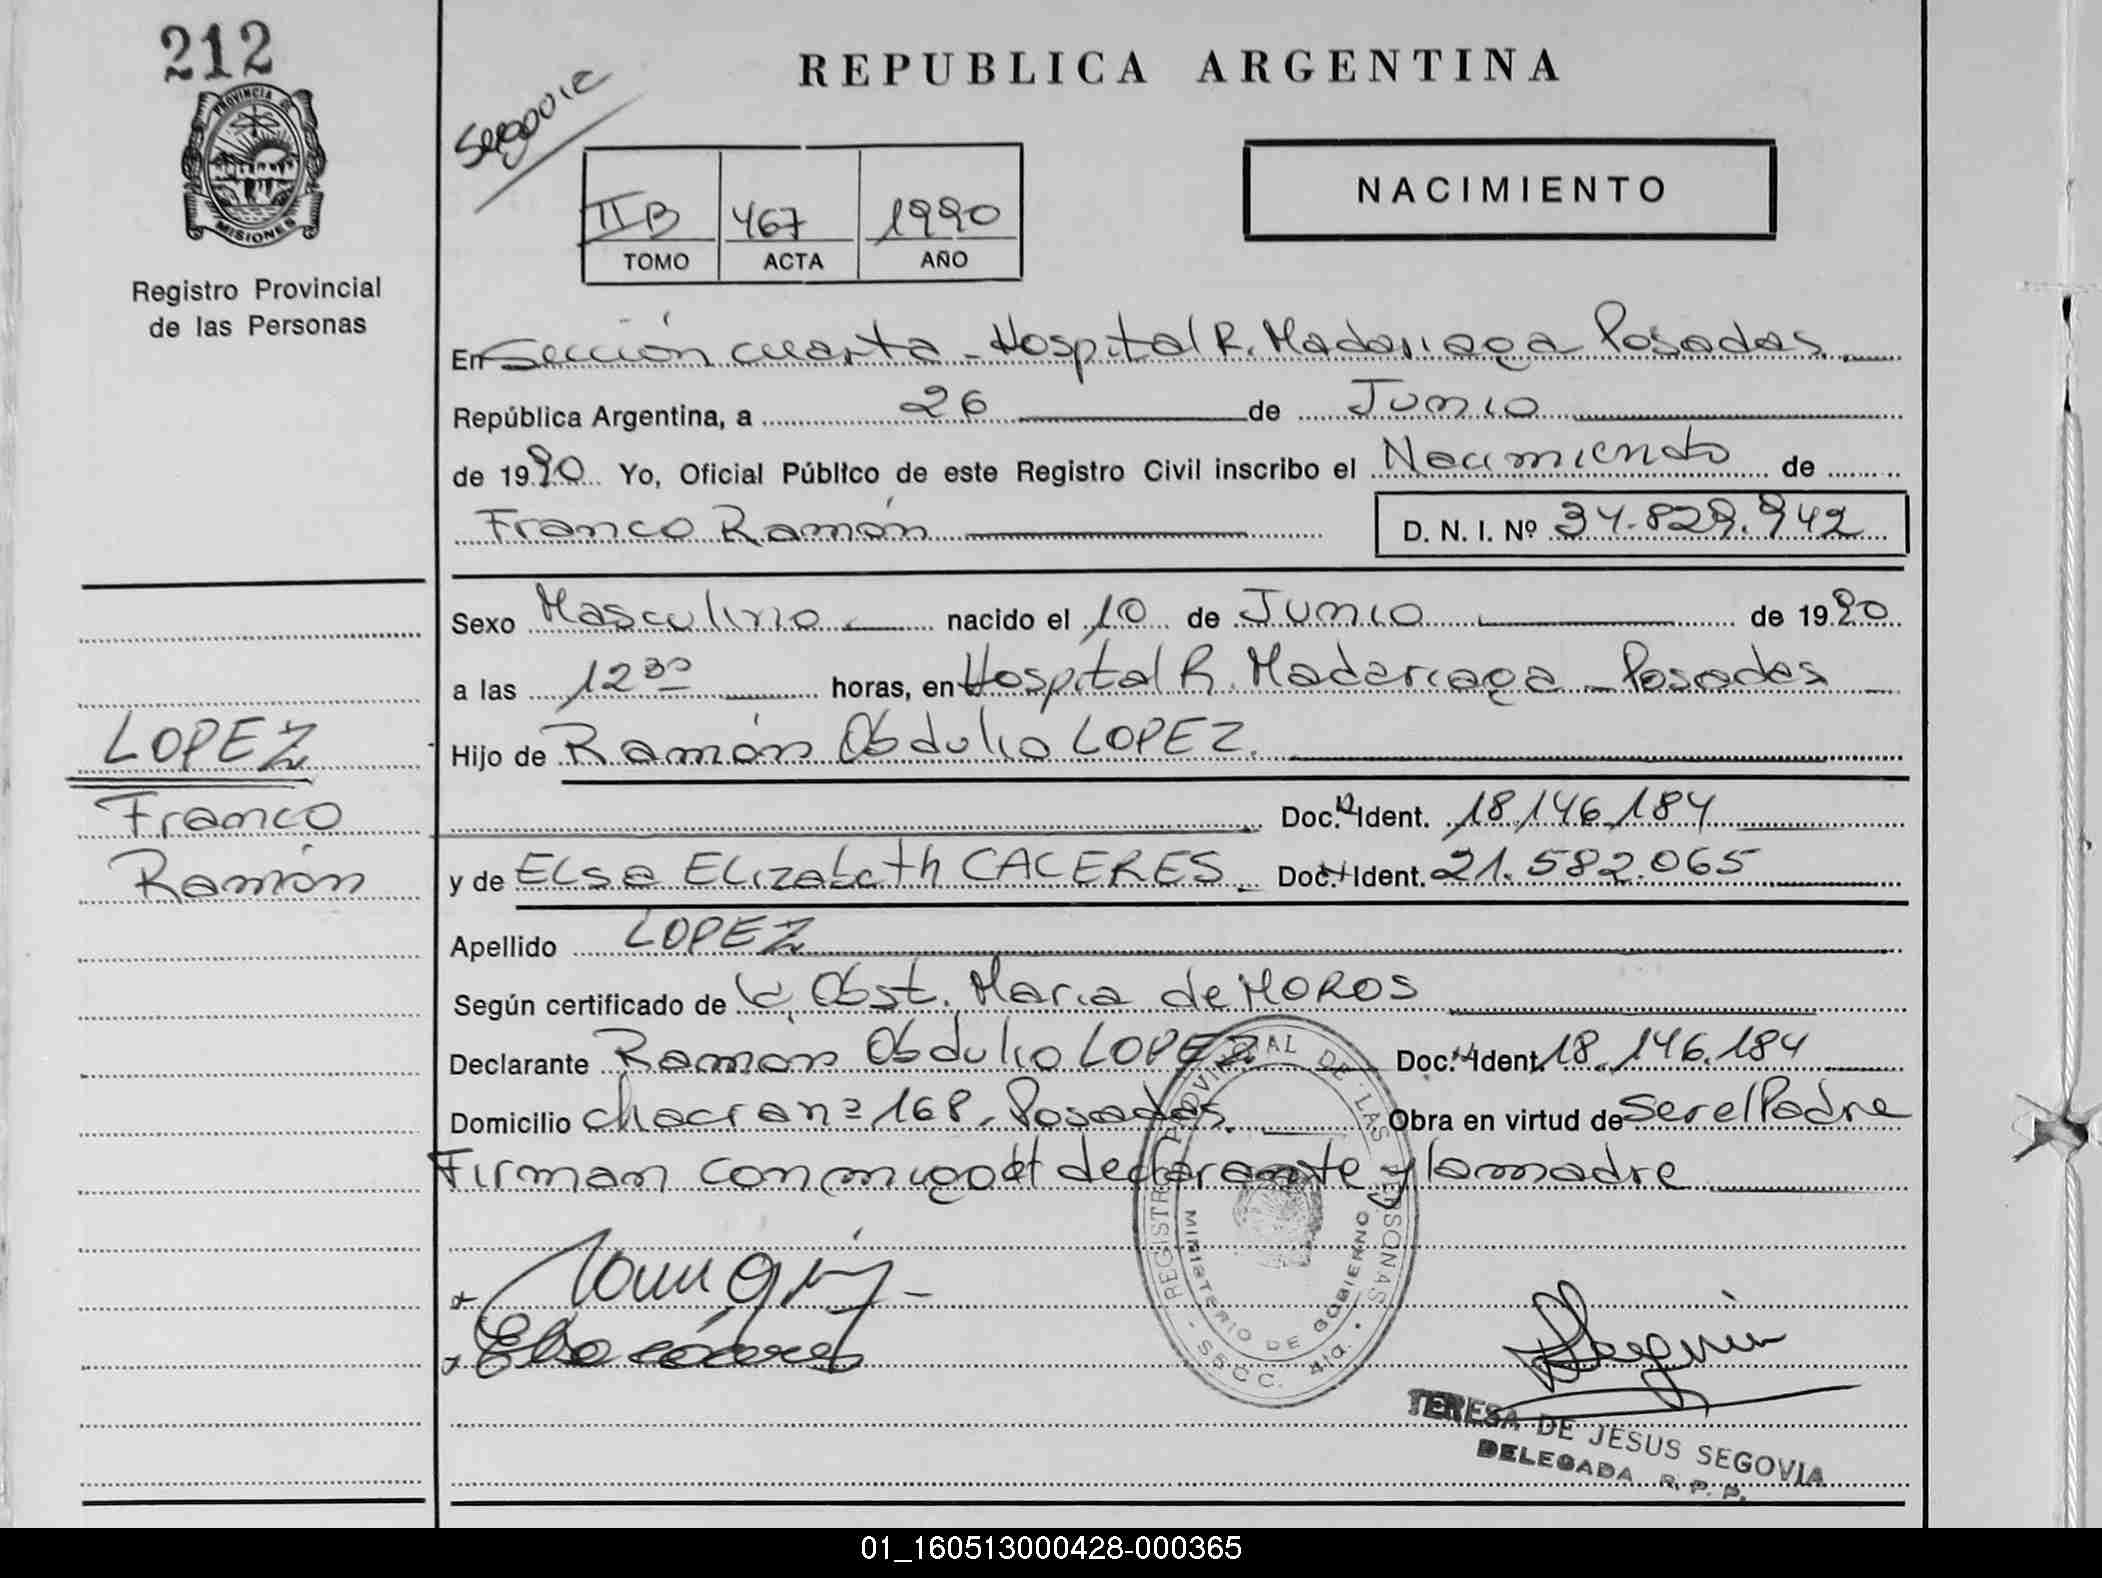 212
PROVINCIA DE
MISIONES
Registro Provincial
de las Personas
REPUBLICA ARGENTINA
Segovia
NACIMIENTO
II B 467 1990
TOMO ACTA AÑO
En Sección cuarta - Hospital R. Madariaga Posadas
República Argentina, a 26 de Junio
de 1990 Yo, Oficial Público de este Registro Civil inscribo el Nacimiento de
Franco Ramón D. N. I. Nº 34.829.942
Sexo Masculino nacido el 10 de Junio de 1990
a las 12 30 horas, en Hospital R. Madariaga - Posadas
Hijo de Ramón Obdulio LOPEZ.
Doc. Ident. 18.146.184
y de ELsa ELizabeth CACERES. Doc. Ident. 21.582.065
Apellido LOPEZ
Según certificado de la Obst. Maria de MOROS
Declarante Ramón Obdulio LOPEZ Doc. Ident. 18.146.184
Domicilio chacra nº 168, Posadas. Obra en virtud de ser el Padre
Firman conmigo el declarante y la madre
LOPEZ
Franco
Ramón
Elsa Cáceres
REGISTRO PROVINCIAL DE LAS PERSONAS
MINISTERIO DE GOBIERNO
- SECC. 4ta. -
TERESA DE JESUS SEGOVIA
DELEGADA R. P. P.
01_160513000428-000365